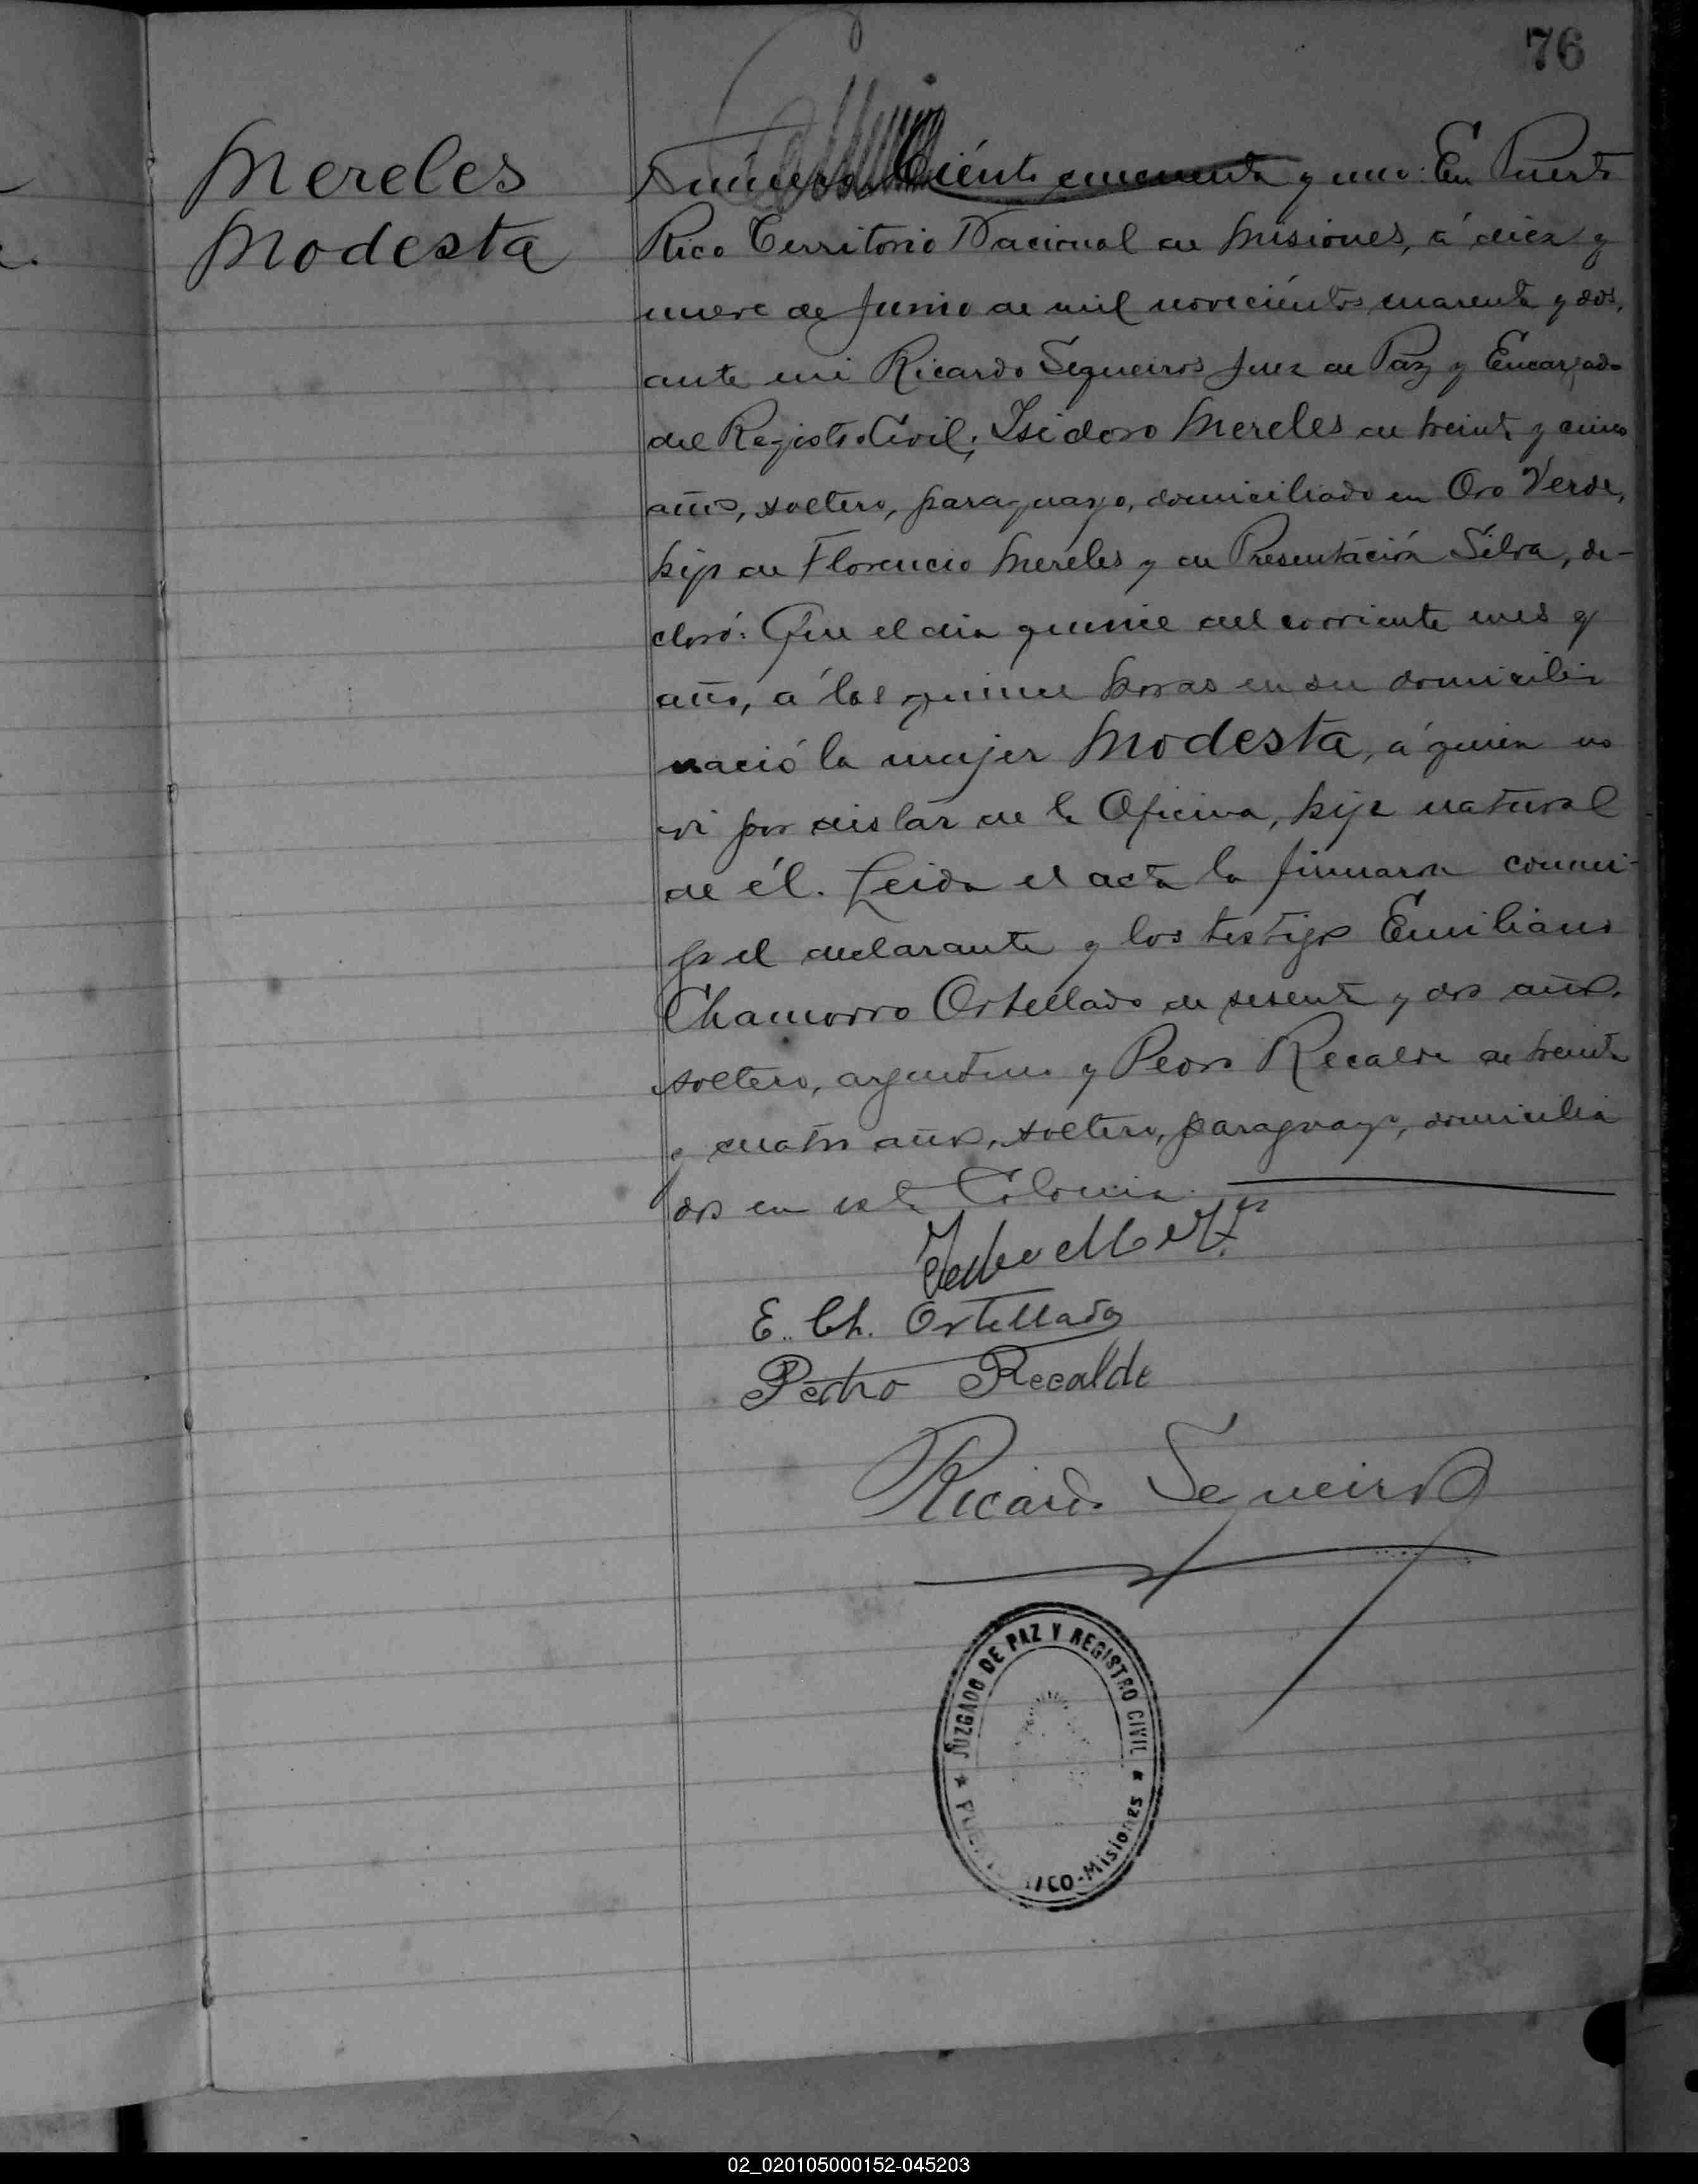 76
Mereles
Modesta
Número Ciento cincuenta y uno: En Puerto
Rico Territorio Nacional de Misiones, á diez y
nueve de Junio de mil novecientos cuarenta y dos,
ante mi Ricardo Sequeiros Juez de Paz y Encargado
del Registro Civil, Isidoro Mereles de treinta y cinco
años, soltero, paraguayo, domiciliado en Oro Verde,
hijo de Florencio Mereles y de Presentación Silva, de-
claró: Que el dia quince del corriente mes y
año, á las quince horas en su domicilio
nació la mujer Modesta, á quien no
vi por distar de la Oficina, hija natural
de él. Leida el acta la firmaron conmi-
go el declarante y los testigos Emiliano
Chamorro Ortellado de sesenta y dos años,
soltero, argentino y Pedro Recalde de treinta
y cuatro años, soltero, paraguayo, domicilia
dos en esta Colonia.
E. Ch. Ortellado
Pedro Recalde
Ricardo Sequeiros
JUZGADO DE PAZ Y REGISTRO CIVIL
PUERTO RICO-Misiones
02_020105000152-045203